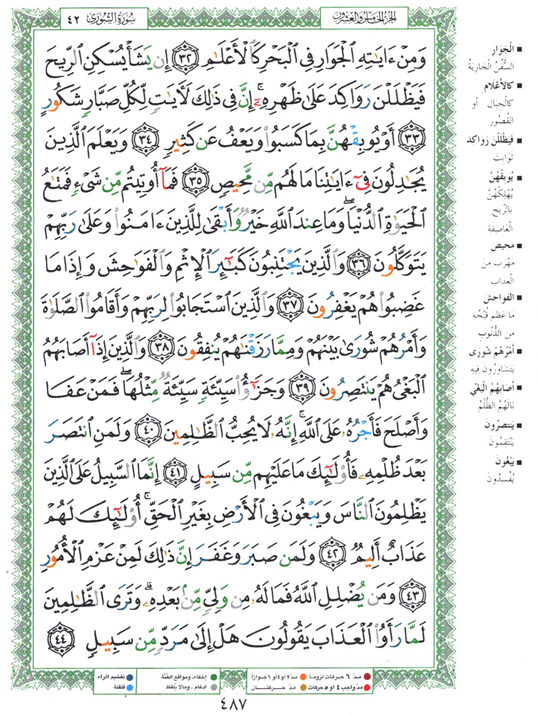 سُورَةُ الشُّورَىٰ ٤٢
الجزء الخامس والعشرون
وَمِنْ ءَايَٰتِهِ ٱلْجَوَارِ فِى ٱلْبَحْرِ كَٱلْأَعْلَٰمِ ٣٢ إِن يَشَأْ يُسْكِنِ ٱلرِّيحَ
فَيَظْلَلْنَ رَوَاكِدَ عَلَىٰ ظَهْرِهِۦٓ إِنَّ فِى ذَٰلِكَ لَءَايَٰتٍ لِّكُلِّ صَبَّارٍ شَكُورٍ
٣٣ أَوْ يُوبِقْهُنَّ بِمَا كَسَبُوا۟ وَيَعْفُ عَن كَثِيرٍ ٣٤ وَيَعْلَمَ ٱلَّذِينَ
يُجَٰدِلُونَ فِىٓ ءَايَٰتِنَا مَا لَهُم مِّن مَّحِيصٍ ٣٥ فَمَآ أُوتِيتُم مِّن شَىْءٍ فَمَتَٰعُ
ٱلْحَيَوٰةِ ٱلدُّنْيَا ۖ وَمَا عِندَ ٱللَّهِ خَيْرٌ وَأَبْقَىٰ لِلَّذِينَ ءَامَنُوا۟ وَعَلَىٰ رَبِّهِمْ
يَتَوَكَّلُونَ ٣٦ وَٱلَّذِينَ يَجْتَنِبُونَ كَبَٰٓئِرَ ٱلْإِثْمِ وَٱلْفَوَٰحِشَ وَإِذَا مَا
غَضِبُوا۟ هُمْ يَغْفِرُونَ ٣٧ وَٱلَّذِينَ ٱسْتَجَابُوا۟ لِرَبِّهِمْ وَأَقَامُوا۟ ٱلصَّلَوٰةَ
وَأَمْرُهُمْ شُورَىٰ بَيْنَهُمْ وَمِمَّا رَزَقْنَٰهُمْ يُنفِقُونَ ٣٨ وَٱلَّذِينَ إِذَآ أَصَابَهُمُ
ٱلْبَغْىُ هُمْ يَنتَصِرُونَ ٣٩ وَجَزَٰٓؤُا۟ سَيِّئَةٍ سَيِّئَةٌ مِّثْلُهَا ۖ فَمَنْ عَفَا
وَأَصْلَحَ فَأَجْرُهُۥ عَلَى ٱللَّهِ ۚ إِنَّهُۥ لَا يُحِبُّ ٱلظَّٰلِمِينَ ٤٠ وَلَمَنِ ٱنتَصَرَ
بَعْدَ ظُلْمِهِۦ فَأُو۟لَٰٓئِكَ مَا عَلَيْهِم مِّن سَبِيلٍ ٤١ إِنَّمَا ٱلسَّبِيلُ عَلَى ٱلَّذِينَ
يَظْلِمُونَ ٱلنَّاسَ وَيَبْغُونَ فِى ٱلْأَرْضِ بِغَيْرِ ٱلْحَقِّ ۚ أُو۟لَٰٓئِكَ لَهُمْ
عَذَابٌ أَلِيمٌ ٤٢ وَلَمَن صَبَرَ وَغَفَرَ إِنَّ ذَٰلِكَ لَمِنْ عَزْمِ ٱلْأُمُورِ
٤٣ وَمَن يُضْلِلِ ٱللَّهُ فَمَا لَهُۥ مِن وَلِىٍّ مِّنۢ بَعْدِهِۦ ۗ وَتَرَى ٱلظَّٰلِمِينَ
لَمَّا رَأَوُا۟ ٱلْعَذَابَ يَقُولُونَ هَلْ إِلَىٰ مَرَدٍّ مِّن سَبِيلٍ ٤٤
■ الْجَوَارِ
السُّفُنُ الْجَارِيَةُ
■ كالأعْلامِ
كالجبال أو
القُصُور
■ فَيَظْلَلْنَ رَوَاكِدَ
ثَوَابِتَ
■ يُوبِقْهُنَّ
يُهْلِكْهُنَّ
بالرِّيحِ
العاصِفة
■ محِيصٍ
مَهْرَبٍ من
العذاب
■ الفواحِش
ما عَظُمَ قُبْحُه
من الذُّنُوبِ
■ أمْرُهُمْ شُورى
يتشاوَرُون فيه
■ أصَابَهُمُ الْبَغْيُ
نالَهُمُ الظُّلْمُ
■ ينتصِرُون
ينْتَقِمُونَ
■ يَبْغُونَ
يُفْسِدُونَ
مدّ ٦ حركات لزوماً
مدّ ٢ أو ٤ أو ٦ جوازاً
إخفاء، ومواقع الغُنَّة
تفخيم الراء
مدّ واجب ٤ أو ٥ حركات
مدّ حركتـان
ادغام، ومالا يلفظ
قلقلة
٤٨٧